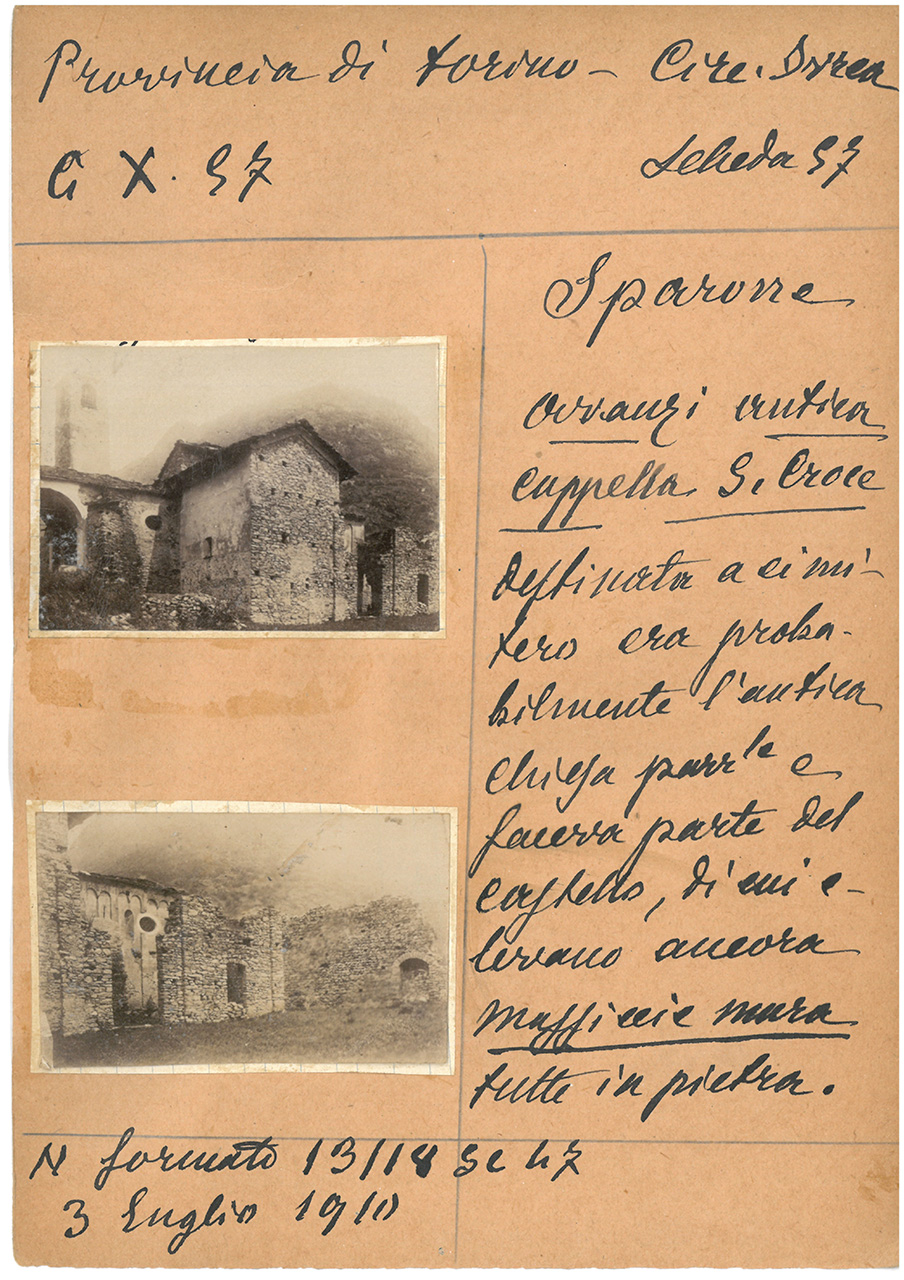 Provincia di Torino – Circ. Ivrea
G X. 57
Scheda 57
Sparone
avvanzi antica
cappella S. Croce
destinata a cimi-
tero era proba-
bilmente l'antica
chiesa parr.le e
faceva parte del
castello, di cui e-
levano ancora
massiccie mura
tutte in pietra.
N formato 13/18 Sc 47
3 Luglio 1910